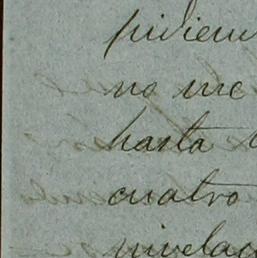 pidien
no me
hasta
cuatro
nivelac